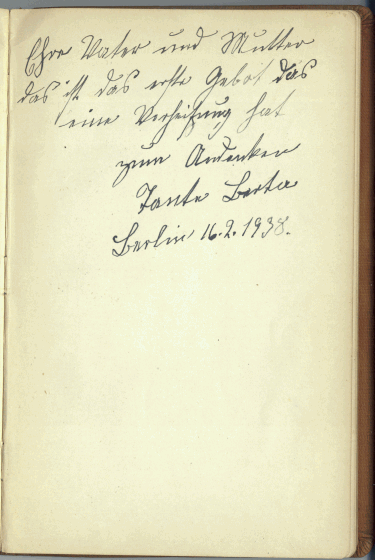 Ehre Vater und Mutter
das ist das erste Gebot das
eine Verheißung hat
zum Andenken
Tante Berta
Berlin 16.2.1938.